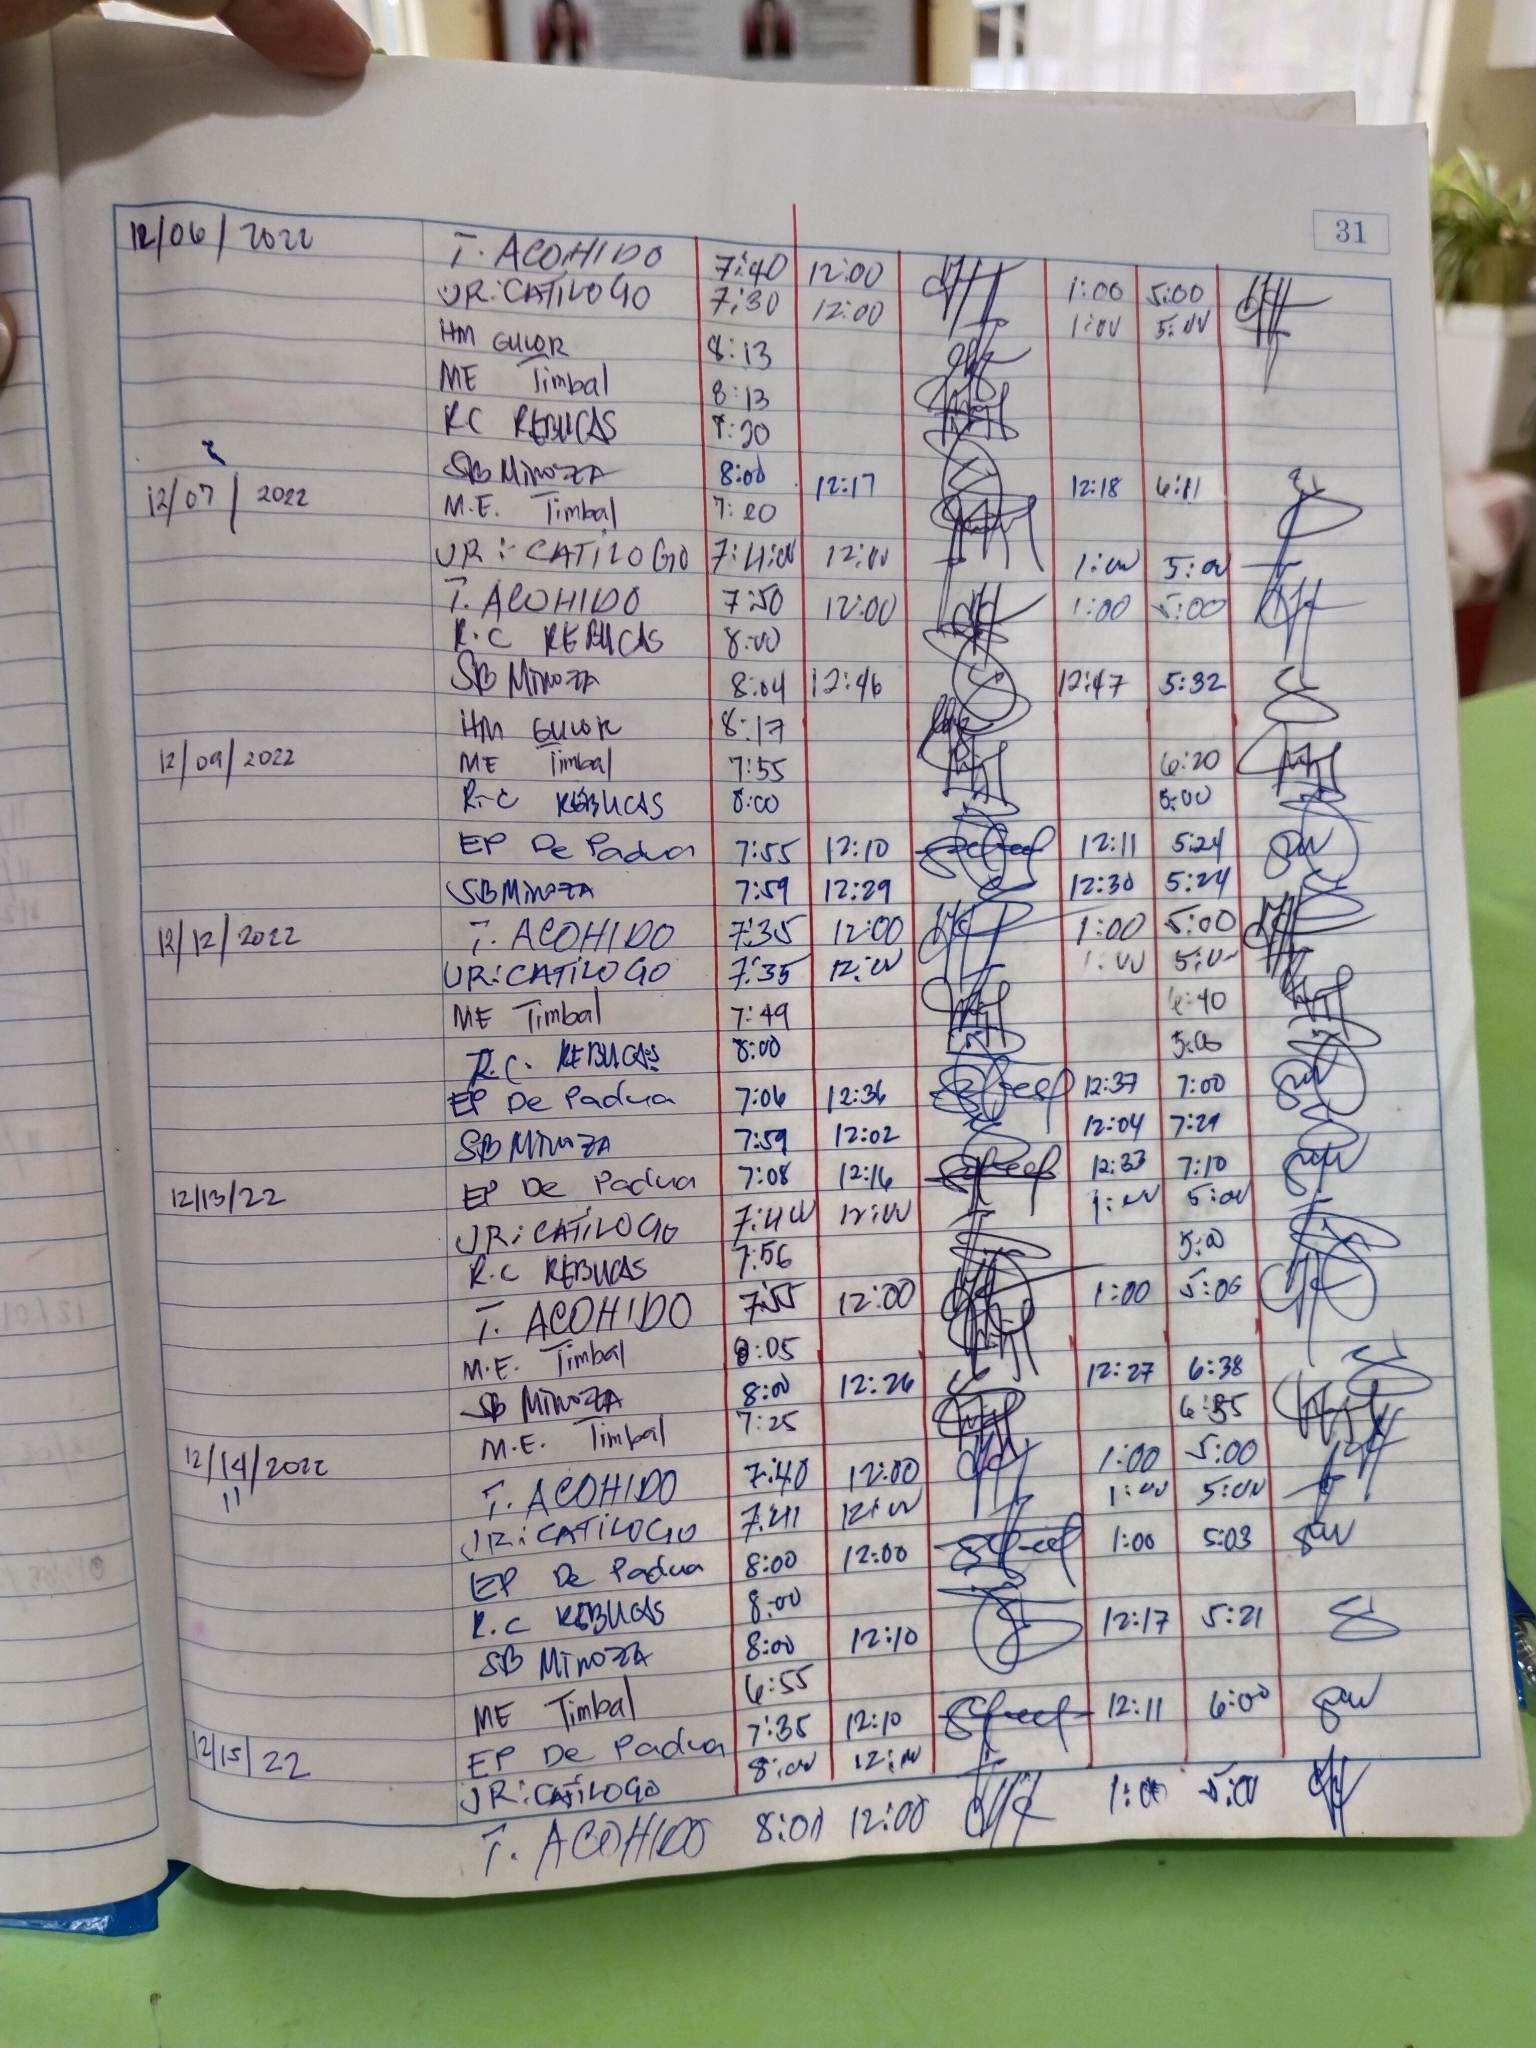 31
12/06/2022 T. ACOHIDO 7:40 12:00 1:00 5:00
JR: CATILOGO 7:30 12:00 1:00 5:00
HM GULOR 8:13
ME Timbal 8:13
RC REBUCAS 7:20
SB MINOZA 8:00 12:17 12:18 6:11
12/07/2022 M.E. Timbal 7:20
JR: CATILOGO 7:4:00 12:00 1:00 5:00
T. ACOHIDO 7:50 12:00 1:00 5:00
R.C REBUCAS 8:00
SB MINOZA 8:04 12:46 12:47 5:32
HM GULOR 8:17
12/09/2022 ME Timbal 7:55 6:20
R.C REBUCAS 8:00 5:00
EP De Padua 7:55 12:10 12:11 5:24
SB MINOZA 7:59 12:29 12:30 5:24
12/12/2022 T. ACOHIDO 7:35 12:00 1:00 5:00
JR: CATILOGO 7:35 12:00 1:00 5:00
ME Timbal 7:49 6:40
R.C. REBUCAS 8:00 5:00
EP De Padua 7:06 12:36 12:37 7:00
SB MINOZA 7:59 12:02 12:04 7:29
12/13/22 EP De Padua 7:08 12:16 12:33 7:10
JR: CATILOGO 7:400 12:00 1:00 5:00
R.C REBUCAS 7:56 5:00
T. ACOHIDO 7:55 12:00 1:00 5:06
M.E. Timbal 8:05
SB MINOZA 8:00 12:26 12:27 6:38
M.E. Timbal 7:25 6:55
12/14/2022 T. ACOHIDO 7:40 12:00 1:00 5:00
11 JR: CATILOGO 7:41 12:00 1:00 5:00
EP De Padua 8:00 12:00 1:00 5:03
R.C REBUCAS 8:00
SB MINOZA 8:00 12:10 12:17 5:21
ME Timbal 6:55
12/15/22 EP De Padua 7:35 12:10 12:11 6:00
JR: CATILOGO 8:00 12:00
T. ACOHIDO 8:00 12:00 1:00 5:00